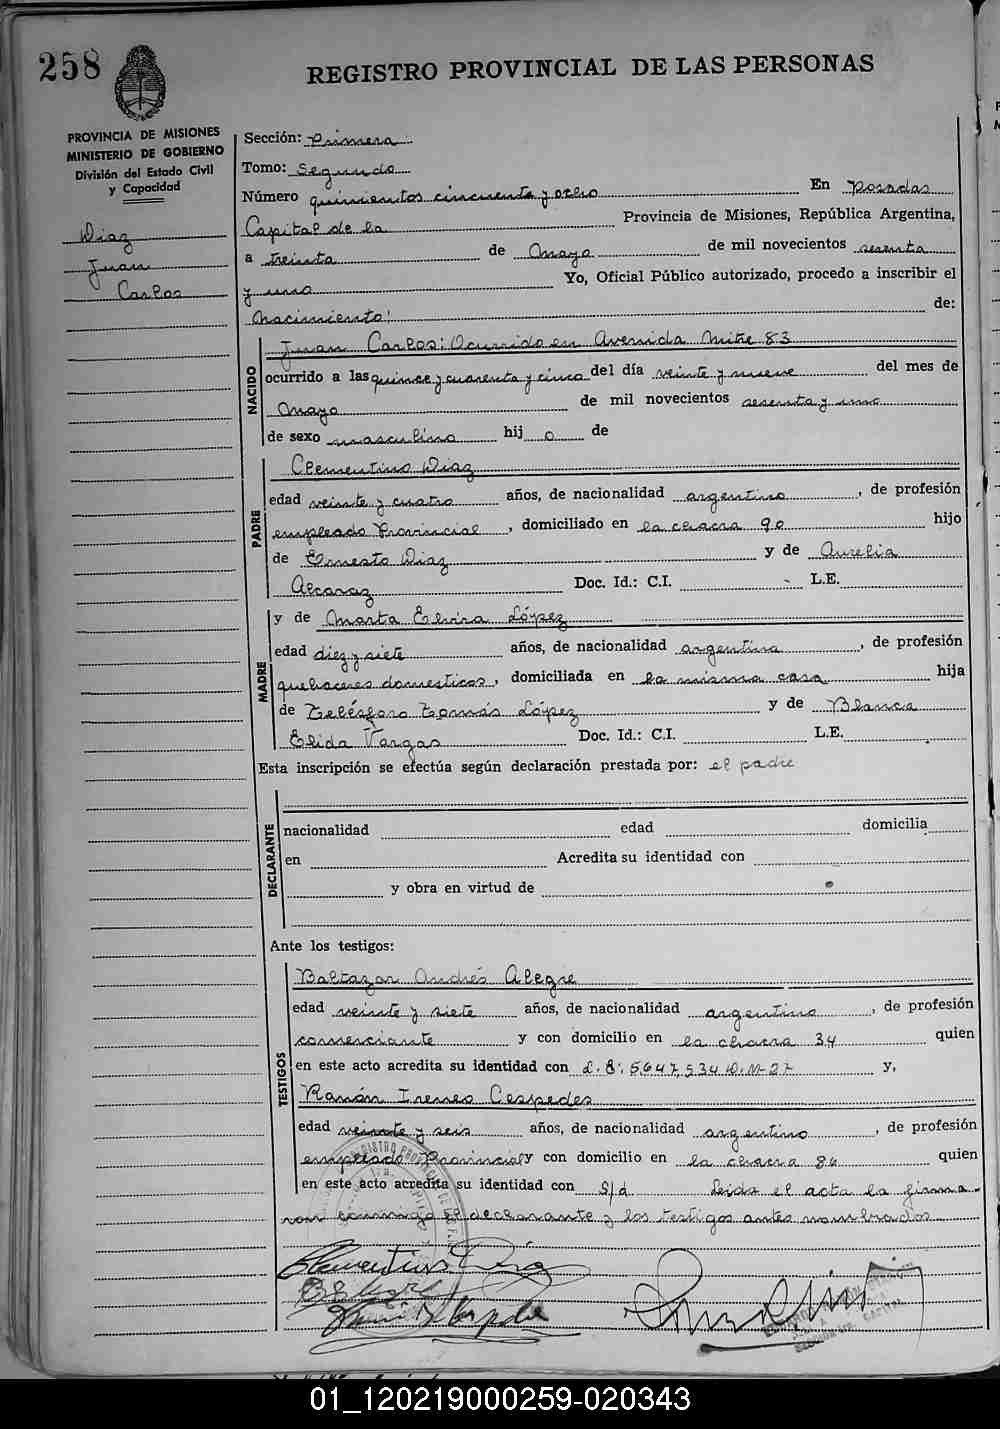 258
REGISTRO PROVINCIAL DE LAS PERSONAS
PROVINCIA DE MISIONES
MINISTERIO DE GOBIERNO
División del Estado Civil
y Capacidad
Diaz
Juan
Carlos
Sección: Primera
Tomo: Segundo
Número quinientos cincuenta y ocho En Posadas
Capital de la Provincia de Misiones, República Argentina,
a treinta de Mayo de mil novecientos sesenta
y uno Yo, Oficial Público autorizado, procedo a inscribir el
Nacimiento: de:
NACIDO
Juan Carlos: Ocurrido en Avenida Mitre 83
ocurrido a las quince y cuarenta y cinco del día veinte y nueve del mes de
Mayo de mil novecientos sesenta y uno
de sexo masculino hij o de
PADRE
Clementino Diaz
edad veinte y cuatro años, de nacionalidad argentino, de profesión
empleado Provincial, domiciliado en la chacra 90 hijo
de Ernesto Diaz y de Aurelia
Alcaraz Doc. Id.: C.I. L.E.
MADRE
y de Marta Elvira López
edad diez y siete años, de nacionalidad argentina, de profesión
quehaceres domesticos, domiciliada en la misma casa hija
de Telésforo Tomás López y de Blanca
Elida Vargas Doc. Id.: C.I. L.E.
Esta inscripción se efectúa según declaración prestada por: el padre
DECLARANTE
nacionalidad edad domicilia
en Acredita su identidad con
y obra en virtud de
Ante los testigos:
TESTIGOS
Baltazar Andrés Alegre
edad veinte y siete años, de nacionalidad argentino, de profesión
comerciante y con domicilio en la chacra 34 quien
en este acto acredita su identidad con L.E. 5.647.534 D.M-27 y,
Ramón Ireneo Cespedes
edad veinte y seis años, de nacionalidad argentino, de profesión
empleado Provincial y con domicilio en la chacra 86 quien
en este acto acredita su identidad con S/d Leida el acta la firma-
ron conmigo el declarante y los testigos antes nombrados
Clementino Diaz
01_120219000259-020343